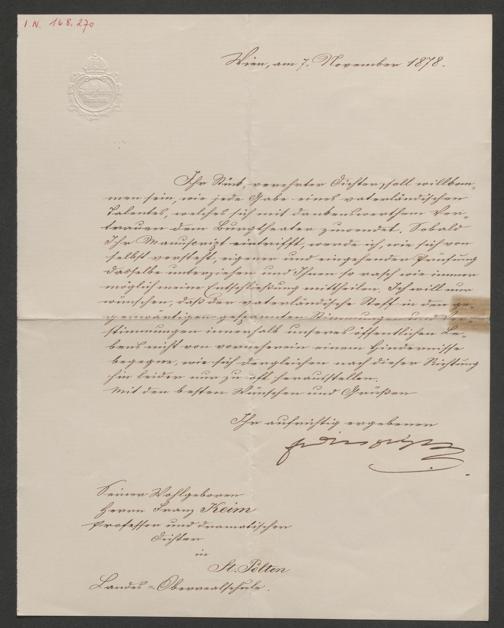 I.N. 168.270
Wien, am 7. November 1878.
Ihr Stück, verehrter Dichter, soll willkom-
men sein, wie jede Gabe eines vaterländischen
Talentes, welches sich mit dankenswerthem Ver-
trauen dem Burgtheater zuwendet. Sobald
Ihr Manuscript eintrifft, werde ich, wie sich von
selbst versteht, eigener und eingehender Prüfung
dasselbe unterziehen und Ihnen so rasch wie immer
möglich meine Entschließung mittheilen. Ich will nur
wünschen, daß der vaterländische Stoff in den ge-
genwärtigen gespannten Stimmungen und
stimmungen innerhalb unseres öffentlichen Le-
bens nicht von vorneherein einem Hindernisse
begegne, wie sich dergleichen nach dieser Richtung
hin leider nur zu oft herausstellen.
Mit den besten Wünschen und Grüßen
Ihr aufrichtig ergebener
Seiner Wohlgeboren
Herrn Franz Keim
Professor und dramatischen
Dichter
in
St. Pölten
Landes-Oberrealschule.